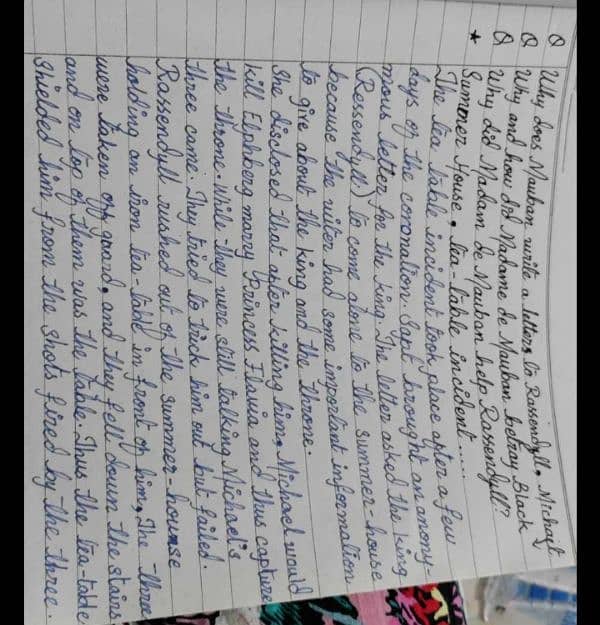 Q Why does Mauban write a letter to Rassendyll, Michael
Q Why and how did Madame de Mauban betray Black
Q Why did Madam de Mauban help Rassendyll?
★ Summer House, tea-table incident....
The tea table incident took place after a few
days of the coronation. Sapt brought an anony-
mous letter for the king. The letter asked the king
(Rassendyll) to come alone to the summer-house
because the writer had some important information
to give about the king and the throne.
She disclosed that after killing him, Michael would
kill Elphberg marry Princess Flavia and thus capture
the throne. While they were still talking Michael's
three came. They tried to trick him out but failed.
Rassendyll rushed out of the summer-house
holding an iron tea-table in front of him, The three
were taken off guard, and they fell down the stairs
and on top of them was the table. Thus the tea-table
shielded him from the shots fired by the three.